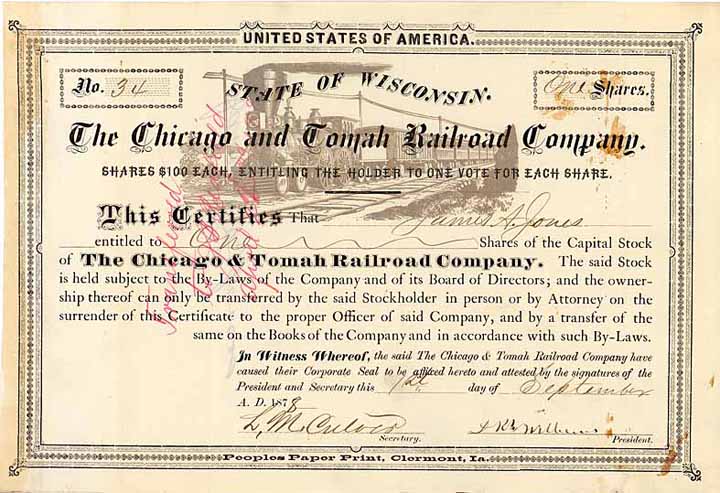 UNITED STATES OF AMERICA.
No. 34
One Shares.
STATE OF WISCONSIN.
The Chicago and Tomah Railroad Company.
SHARES $100 EACH, ENTITLING THE HOLDER TO ONE VOTE FOR EACH SHARE.
This Certifies That James A. Jones
entitled to One Shares of the Capital Stock
of The Chicago & Tomah Railroad Company. The said Stock
is held subject to the By-Laws of the Company and of its Board of Directors; and the owner-
ship thereof can only be transferred by the said Stockholder in person or by Attorney on the
surrender of this Certificate to the proper Officer of said Company, and by a transfer of the
same on the Books of the Company and in accordance with such By-Laws.
In Witness Whereof, the said The Chicago & Tomah Railroad Company have
caused their Corporate Seal to be affixed hereto and attested by the signatures of the
President and Secretary this 1st day of September
A. D. 1878
Secretary.
President.
Peoples Paper Print, Clermont, Ia.
Transferred